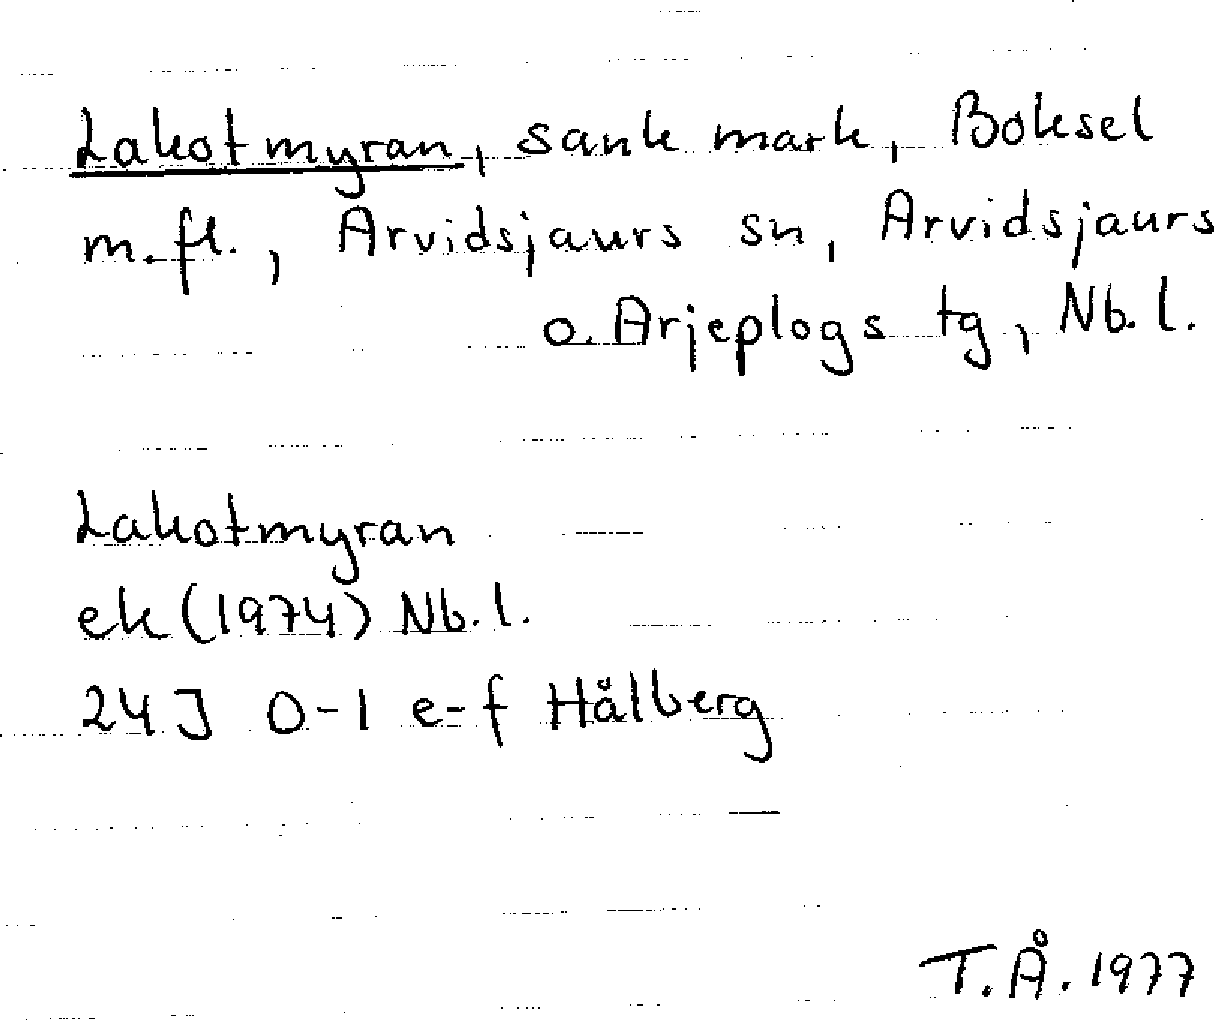 Lakotmyran, sank mark, Boksel
m.fl., Arvidsjaurs sn, Arvidsjaurs
o. Arjeplogs tg, Nb.l.
Lakotmyran
ek (1974) Nb.l.
24J 0-1 e-f Hålberg
T.Å. 1977